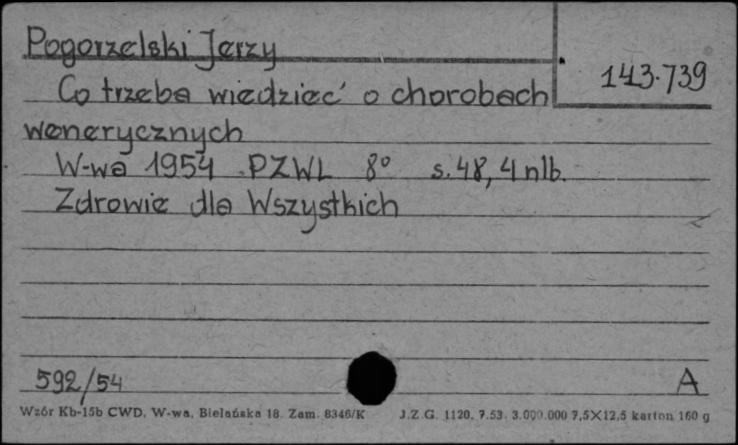 Pogorzelski Jerzy
143.739
Co trzeba wiedzieć o chorobach
wenerycznych
W-wa 1954 PZWL 8° s. 48, 4 nlb.
Zdrowie dla Wszystkich
592/54
A
Wzór Kb-15b CWD, W-wa, Bielańska 18. Zam. 8346/K J.Z.G. 1120. 7.53. 3.000.000 7,5×12,5 karton 160 g